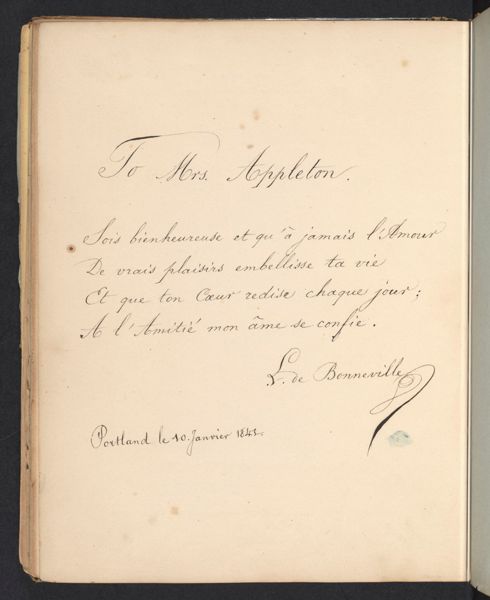 To Mrs. Appleton.
Sois bienheureuse et qu'à jamais l'Amour
De vrais plaisirs embellisse ta vie
Et que ton Cœur redise chaque jour;
A l'Amitié mon âme se confie.
L. de Bonneville
Portland le 10. Janvier 1843.